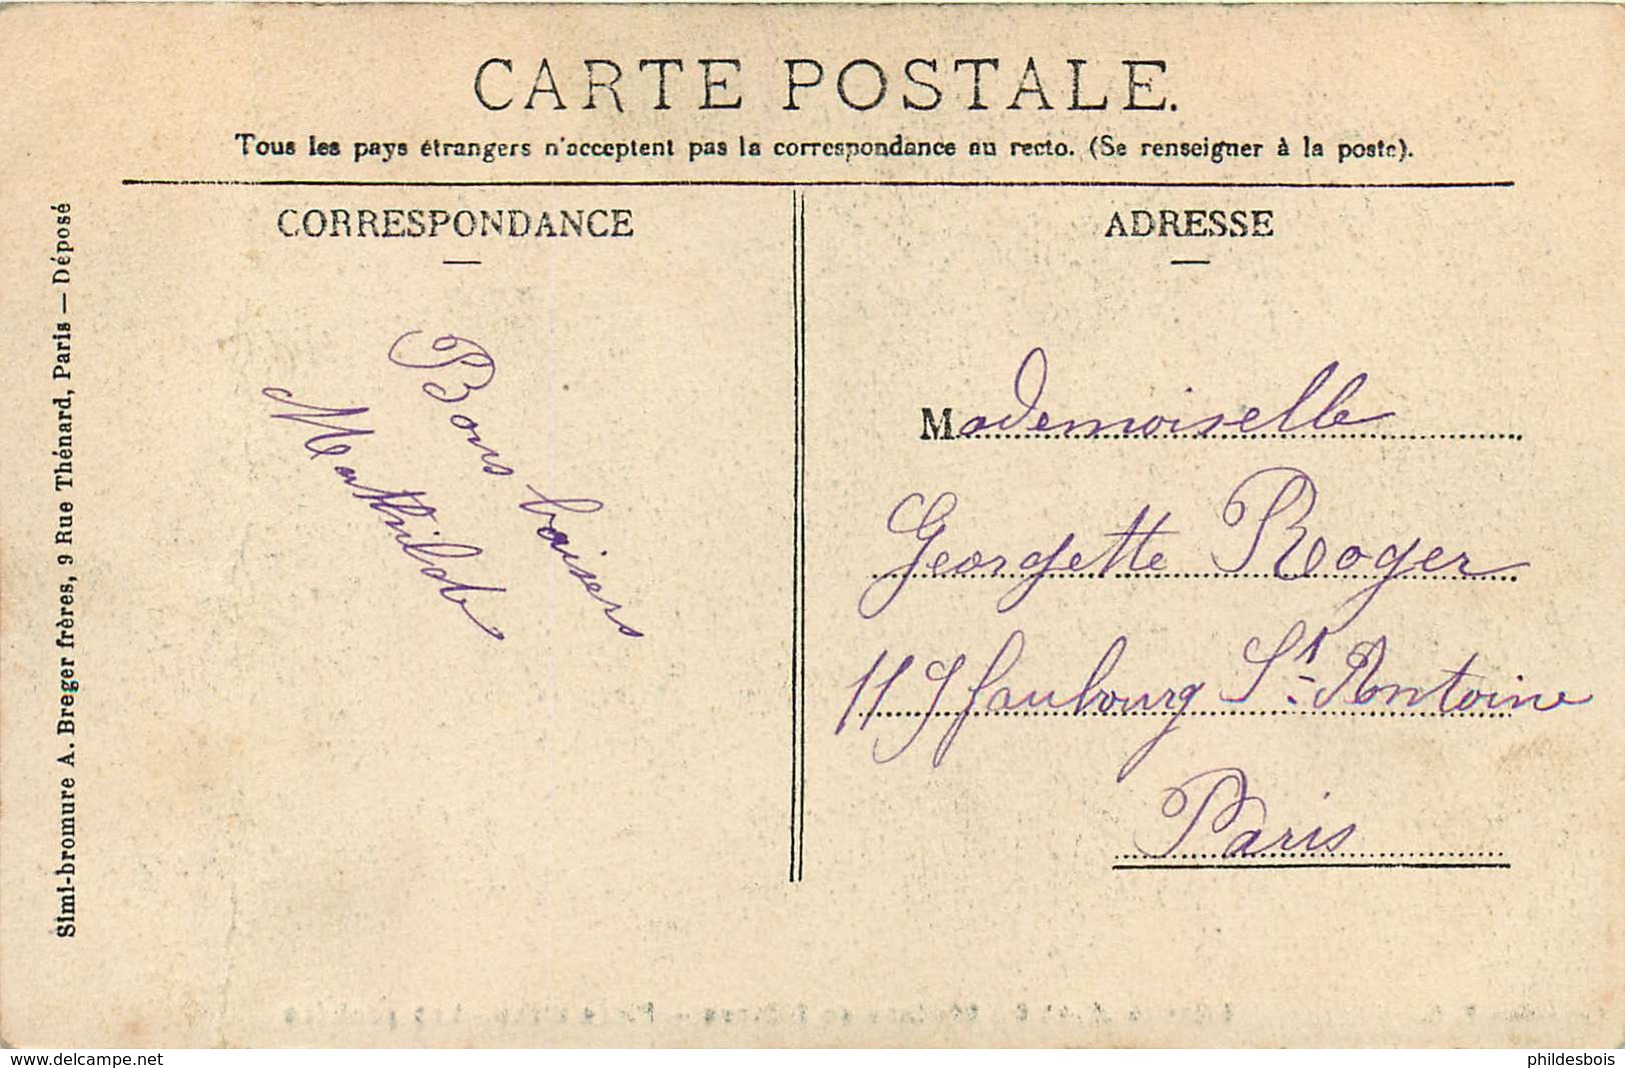 CARTE POSTALE.
Tous les pays étrangers n'acceptent pas la correspondance au recto. (Se renseigner à la poste).
CORRESPONDANCE
Bons baisers
Mathilde
ADRESSE
Mademoiselle
Georgette Roger
119 faubourg St. Antoine
Paris
Simi-bromure A. Breger frères, 9 Rue Thénard, Paris — Déposé
www.delcampe.net
phildesbois